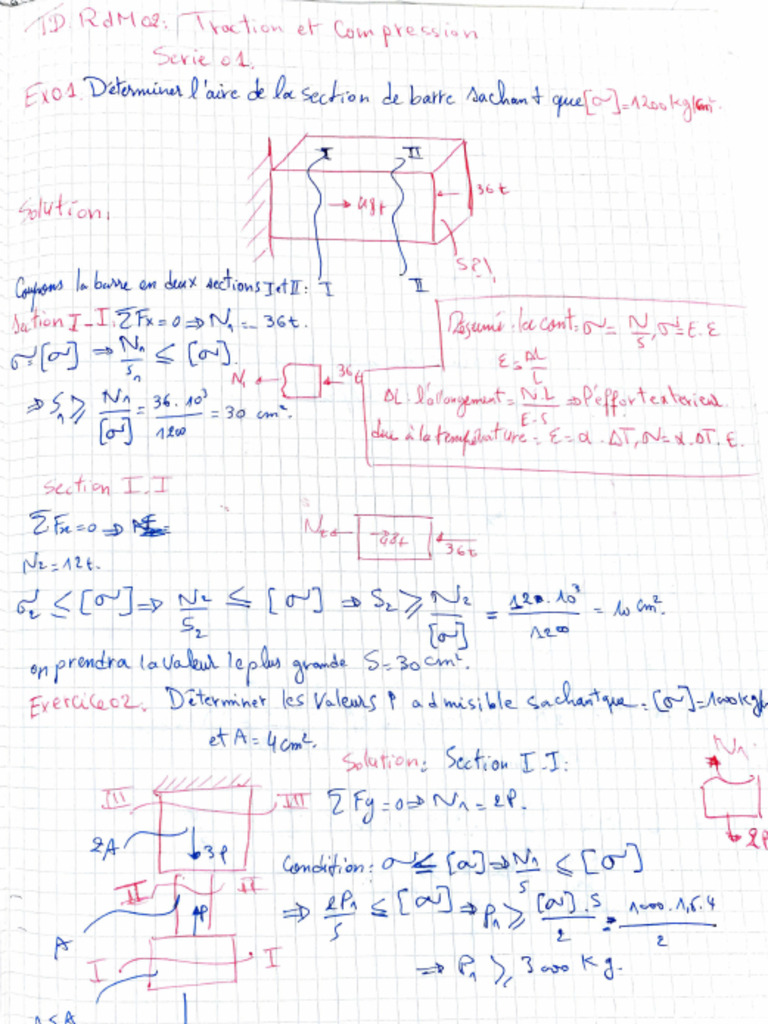 T.D. RdM02: Traction et Compression
Serie 01.
Exo1. Déterminer l'aire de la section de barre sachant que [σ]=1200kg/cm².
I II
→ 48t ← 36t
Solution:
S?!
Coupons la barre en deux sections I et II: I II
Section I-I: ΣFx=0 ⇒ N₁ = -36t.
σ≤[σ] ⇒ N₁/S₁ ≤ [σ].
N₁ ← ← 36t
⇒ S₁ ≥ N₁/[σ] = 36.10³/1200 = 30 cm².
Résumé: la cont: σ = N/S, σ = E.ε
ε = ΔL/L
ΔL: l'alongement = N.L/E.S ⇒ l'éffort exterieur
due à la température: ε = α.ΔT, σ = α.ΔT.E.
Section I.I
ΣFx=0 ⇒
N₂ ← → 48t ← 36t
N₂ = 12t.
σ₂ ≤ [σ] ⇒ N₂/S₂ ≤ [σ] ⇒ S₂ ≥ N₂/[σ] = 12.10³/1200 = 10 cm².
on prendra la valeur le plus grande S=30cm².
Exercice02. Déterminer les valeurs P admisible sachant que: [σ]=1000kg/
et A = 4cm².
Solution: Section I-I:
N₁
III III
ΣFy=0 ⇒ N₁=2P.
2P
2A 3P
Condition: σ ≤ [σ] ⇒ N₁/S ≤ [σ]
II II
⇒ 2P₁/S ≤ [σ] ⇒ P₁ ≥ [σ].S/2 = 1000.1,5.4/2
A P
I I
⇒ P₁ ≥ 3000 Kg.
1,5A